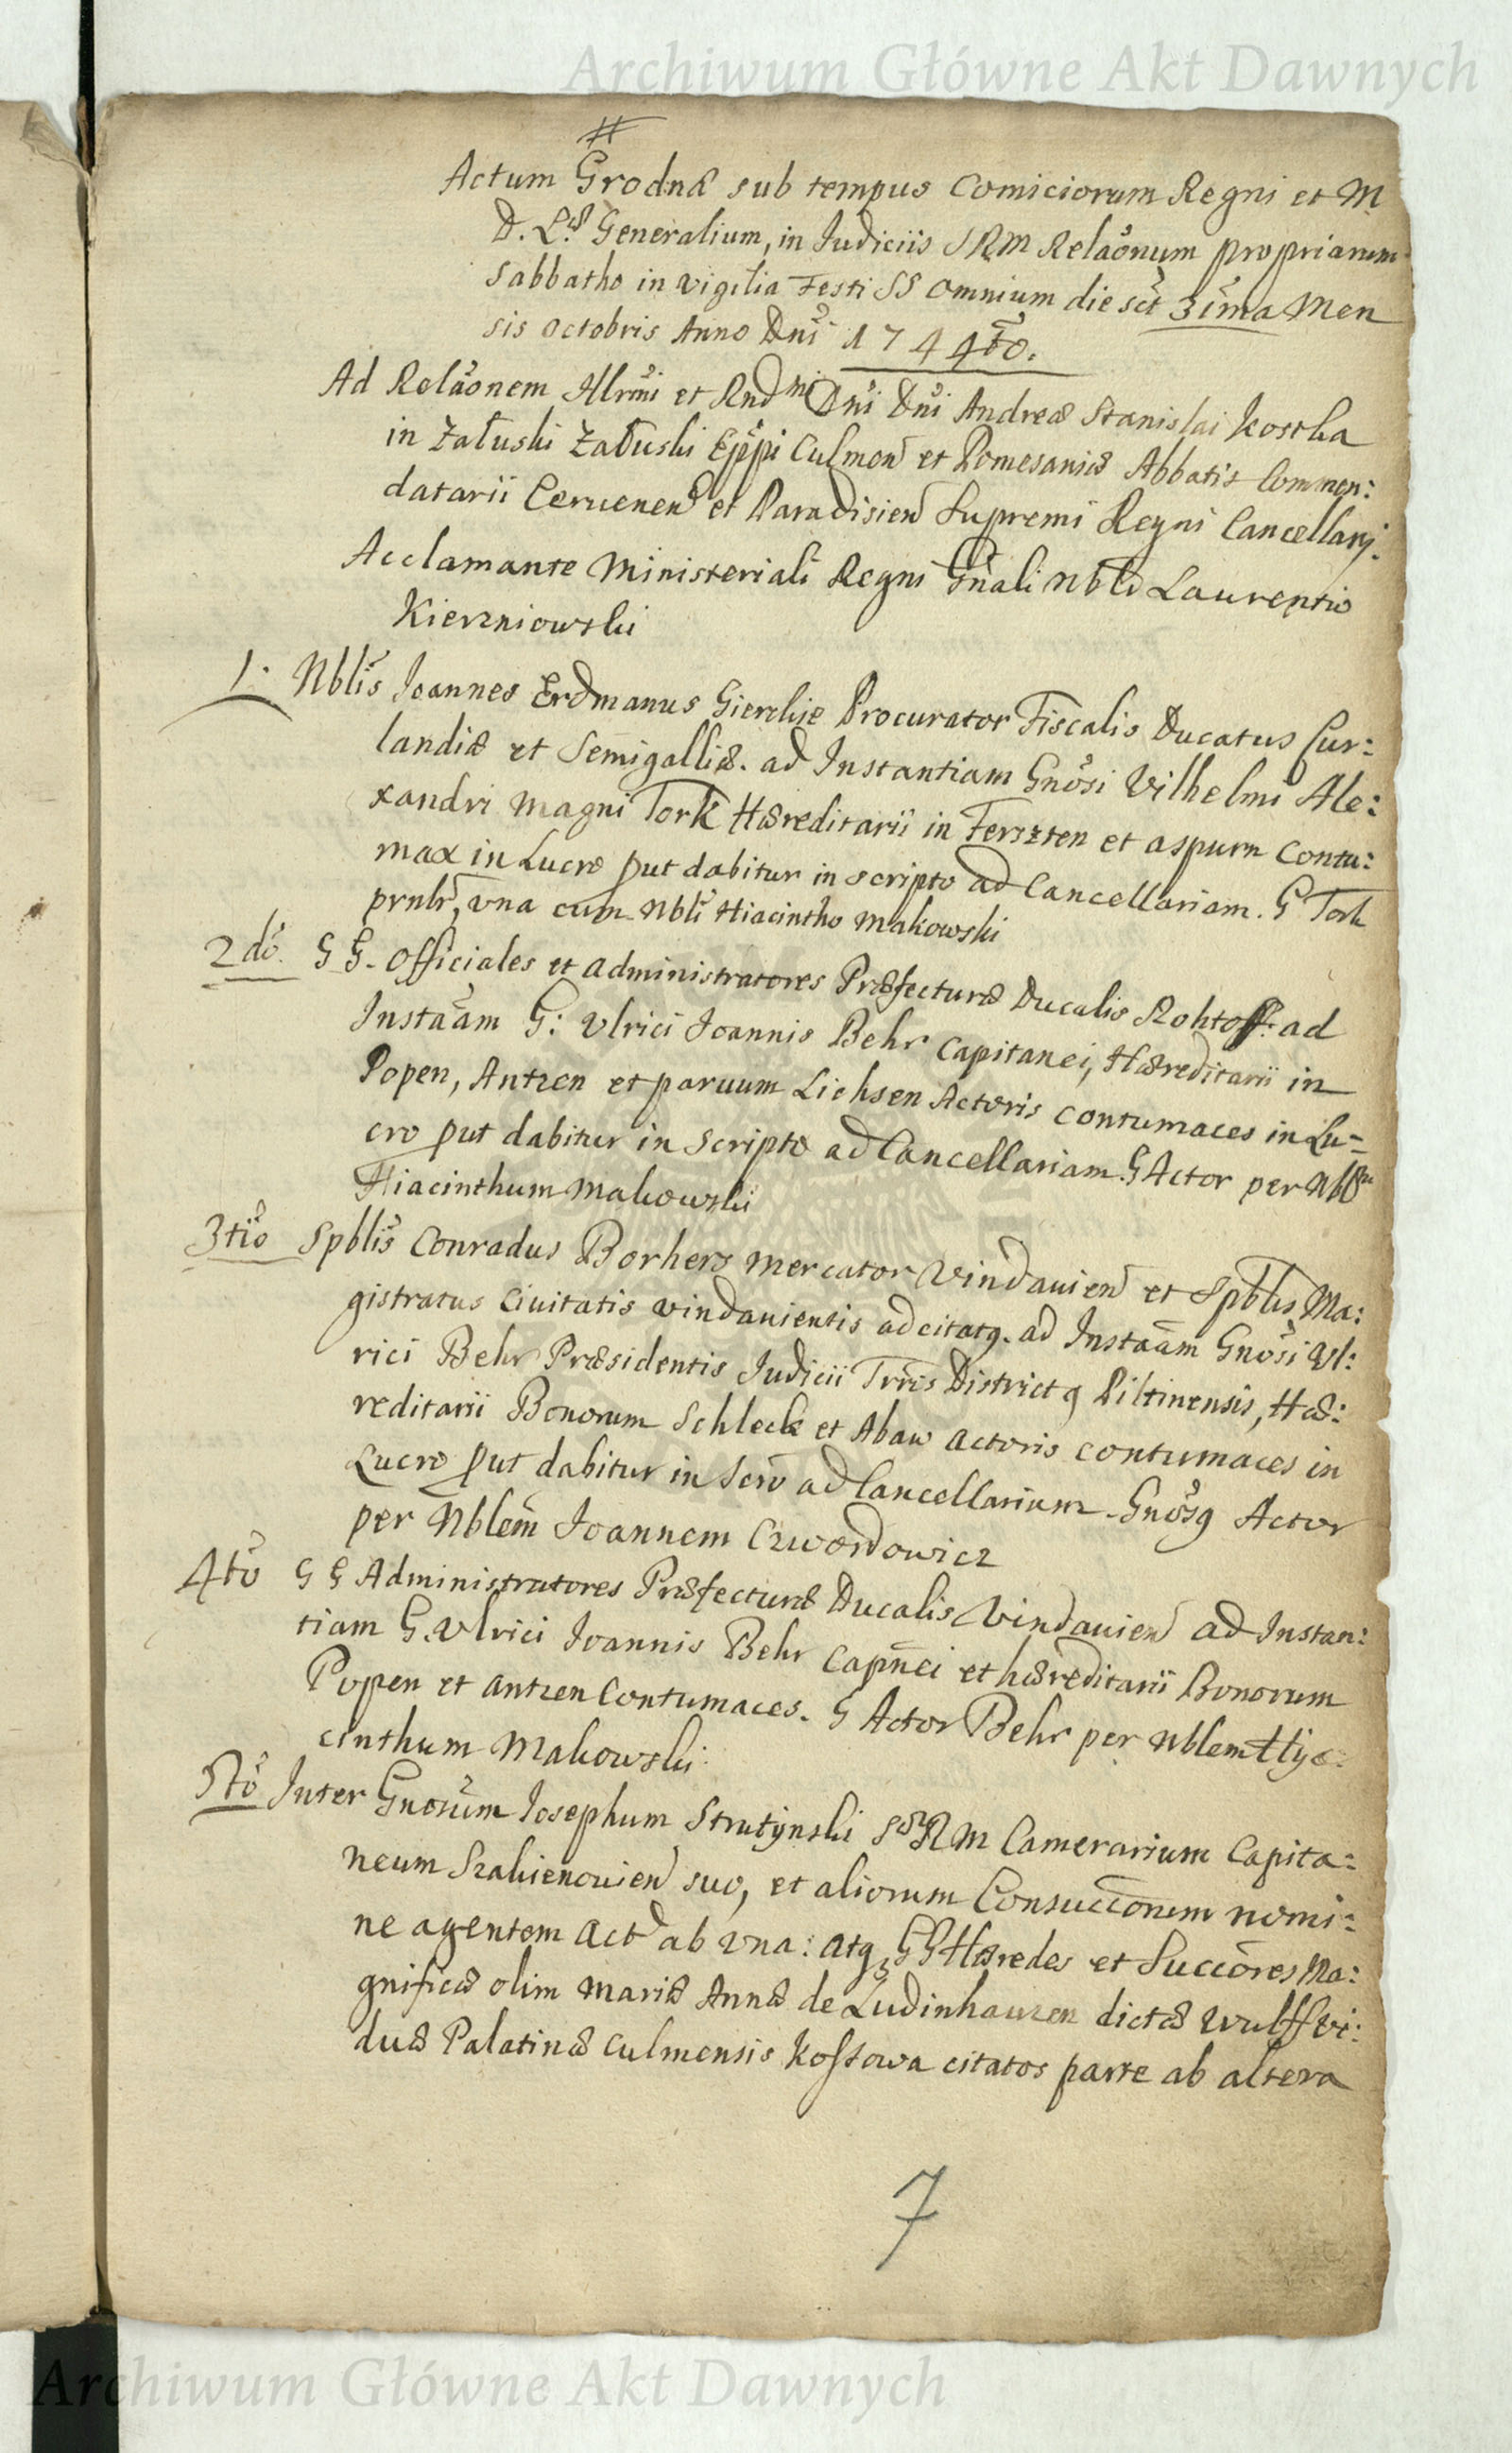 Archiwum Główne Akt Dawnych
#
Actum Grodnæ sub tempus Comiciorum Regni et M
D. L.æ Generalium, in Judiciis SRM Relaõnum propriarum
Sabbatho in vigilia Festi SS Omnium die sct 31ma Men
sis Octobris Anno Dni 1744to.
Ad Relaõnem Illrmi et Rndmi Dni Dni Andreæ Stanislai Kostka
in Załuski Załuski Eppi Culmen et Pomesaniæ Abbatis Commen:
datarii Ceruenen et Paradisien Supremi Regni Cancellarj.
Acclamante Ministeriali Regni Gnali Nbld Laurentio
Kierzniowski
1. Nblis Joannes Erdmanus Gierchie Procurator Fiscalis Ducatus Cur:
landiæ et Semigalliæ. ad Instantiam Gnõsi Vilhelmi Ale:
xandri Magni Tork Hæreditarii in Ferszten et aspurn Contu:
max in Lucro put dabitur in scripto ad Cancellariam. G Tork
prnlr, vna cum Nbli Hiacintho Makowski
2do. G G. Officiales et Administratores Præfecturæ Ducalis Rohtoff: ad
Instaãm G: Vlrici Joannis Behr Capitanei, Hæreditarii in
Popen, Antzen et paruum Lichsen Actoris contumaces in Lu=
cro put dabitur in Scripto ad Cancellariam. G Actor per Nblm
Hiacinthum Makowski
3tio Spblis Conradus Borhers Mercator Vindauien et Spblis Ma:
gistratus Ciuitatis vindauiensis adcitatq. ad Instaãm Gnõsi Vl:
rici Behr Præsidentis Judicii Trris Districtq Piltinensis, Hæ:
reditarii Bonorum Schleck et Abaw Actoris contumaces in
Lucro put dabitur in Scro ad Cancellariam. Gnõsq Actor
per Nblem Joannem Czwordowicz
4to G G Administratores Præfecturæ Ducalis Vindauien ad Instan:
tiam G. Vlrici Joannis Behr Capnei et hæreditarii Bonorum
Popen et Antzen Contumaces. G Actor Behr per Nblem Hya:
cinthum Makowski.
5to Inter Gnosum Josephum Strutÿnski SæRM Camerarium Capita:
neum Szakienouien suo, et aliorum Consuccõrum nomi:
ne agentem Act ab vna: atq, G G Hæredes et Succõres Ma:
gnificæ olim Mariæ Annæ de Ludinhauzen dictæ Wulff Vi:
duæ Palatinæ Culmensis Kossowa citatos parte ab altera
7
Archiwum Główne Akt Dawnych